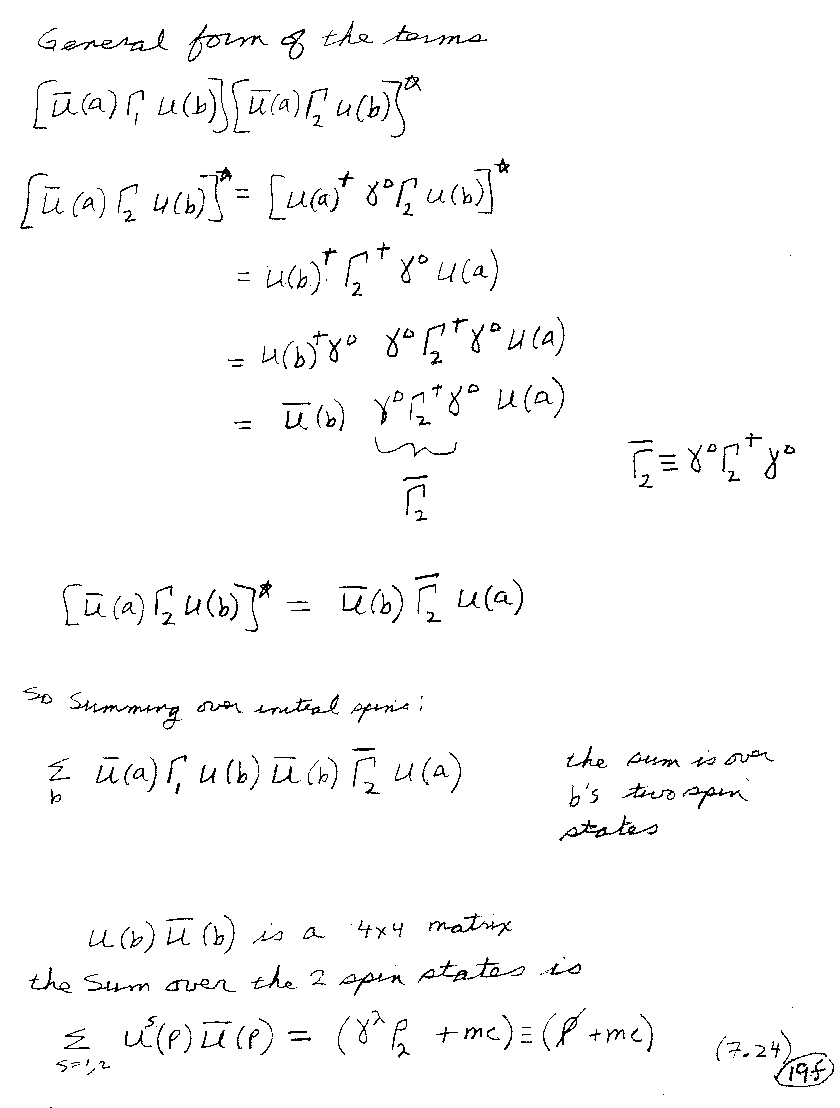 General form of the terms
[ū(a) Γ₁ u(b)][ū(a) Γ₂ u(b)]*
[ū(a) Γ₂ u(b)]* = [u(a)† γ⁰ Γ₂ u(b)]*
= u(b)† Γ₂† γ⁰ u(a)
= u(b)† γ⁰ γ⁰ Γ₂† γ⁰ u(a)
= ū(b) γ⁰ Γ₂† γ⁰ u(a)
Γ̄₂
Γ̄₂ ≡ γ⁰ Γ₂† γ⁰
[ū(a) Γ₂ u(b)]* = ū(b) Γ̄₂ u(a)
So Summing over initial spins:
Σ_b ū(a) Γ₁ u(b) ū(b) Γ̄₂ u(a)
the sum is over
b's two spin
states
u(b) ū(b) is a 4x4 matrix
the Sum over the 2 spin states is
Σ_{s=1,2} uˢ(p) ū(p) = (γ^λ p_λ + mc) ≡ (p̸ + mc) (7.24)
19f